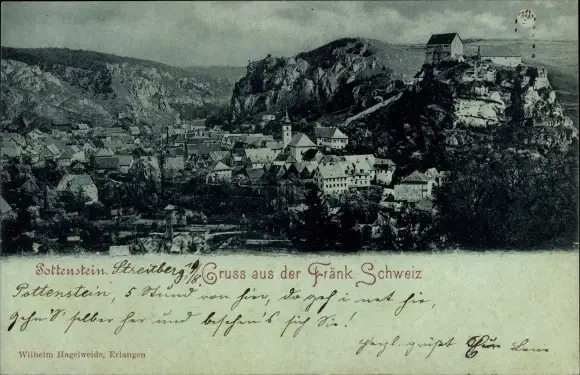 Pottenstein. Streitberg 9/8 Gruss aus der Fränk. Schweiz
Pottenstein, 5 Stund von hier, do geh i net hie,
geh'n S' selber her und beseh'n S' sich Sie!
herzl. grüßt Eure Lene
Wilhelm Hagelweide, Erlangen